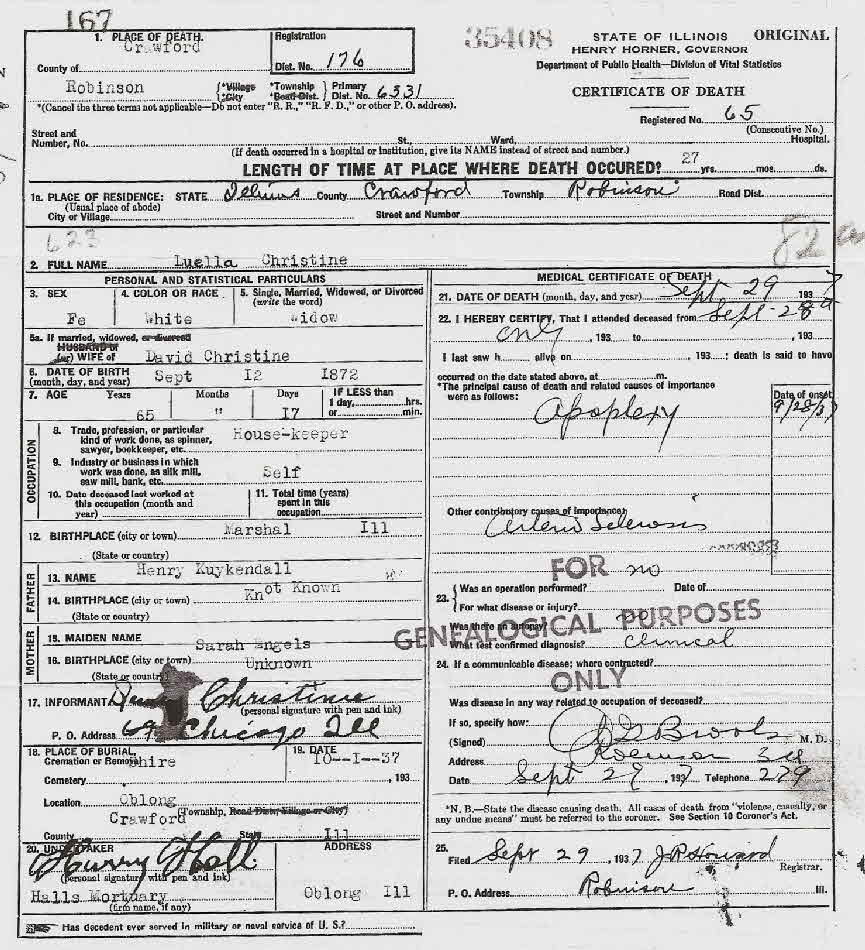 167
35408
STATE OF ILLINOIS ORIGINAL
HENRY HORNER, GOVERNOR
Department of Public Health—Division of Vital Statistics
CERTIFICATE OF DEATH
Registered No. 65
(Consecutive No.)
1. PLACE OF DEATH.
Crawford
County of
Registration
Dist. No. 176
Robinson
*Village
*City
*Township
*Road Dist.
Primary
Dist. No. 6331
*(Cancel the three terms not applicable—Do not enter "R. R.," "R. F. D.," or other P. O. address).
Street and
Number, No. St., Ward, Hospital.
(If death occurred in a hospital or institution, give its NAME instead of street and number.)
LENGTH OF TIME AT PLACE WHERE DEATH OCCURED? 27 yrs. mos. ds.
1a. PLACE OF RESIDENCE: STATE Illinois County Crawford Township Robinson Road Dist.
(Usual place of abode)
City or Village Street and Number
623
82
2. FULL NAME Luella Christine
PERSONAL AND STATISTICAL PARTICULARS
3. SEX
Fe
4. COLOR OR RACE
White
5. Single, Married, Widowed, or Divorced
(write the word)
Widow
5a. If married, widowed, or divorced
HUSBAND of
(or) WIFE of David Christine
6. DATE OF BIRTH
(month, day, and year) Sept I2 I872
7. AGE Years Months Days IF LESS than
1 day, hrs.
65 " I7 or min.
OCCUPATION
8. Trade, profession, or particular
kind of work done, as spinner,
sawyer, bookkeeper, etc. House-keeper
9. Industry or business in which
work was done, as silk mill,
saw mill, bank, etc. Self
10. Date deceased last worked at
this occupation (month and
year)
11. Total time (years)
spent in this
occupation
12. BIRTHPLACE (city or town) Marshal Ill
(State or country)
FATHER
13. NAME Henry Kuykendall
14. BIRTHPLACE (city or town) Knot Known
(State or country)
MOTHER
15. MAIDEN NAME Sarah Engels
16. BIRTHPLACE (city or town) Unknown
(State or country)
17. INFORMANT Christine
(personal signature with pen and ink)
P. O. Address Chicago Ill
18. PLACE OF BURIAL,
Cremation or Removal
Shire
19. DATE
IO--I--37
Cemetery , 193
Location Oblong
Township, Road Dist., Village or City)
Crawford
County State Ill
20. UNDERTAKER
Harry Hall
(personal signature with pen and ink)
Halls Mortuary
(firm name, if any)
ADDRESS
Oblong Ill
Has decedent ever served in military or naval service of U. S.?
MEDICAL CERTIFICATE OF DEATH
21. DATE OF DEATH (month, day, and year) Sept 29 1937
22. I HEREBY CERTIFY, That I attended deceased from Sept-28
only , 193 to , 193
I last saw h alive on , 193 ; death is said to have
occurred on the date stated above, at m.
*The principal cause of death and related causes of importance
were as follows:
Date of onset
Apoplexy
9/28/37
Other contributory causes of importance:
Arterio Sclerosis
FOR
GENEALOGICAL PURPOSES
ONLY
23. Was an operation performed? no Date of
For what disease or injury?
Was there an autopsy? no
What test confirmed diagnosis? Clinical
24. If a communicable disease; where contracted?
Was disease in any way related to occupation of deceased?
If so, specify how:
(Signed) Brooks M. D.
Address Robinson Ill
Date Sept 29 , 1937 Telephone 279
*N. B.—State the disease causing death. All cases of death from "violence, casualty, or
any undue means" must be referred to the coroner. See Section 10 Coroner's Act.
25.
Filed Sept 29 , 1937 J R Howard
Registrar.
P. O. Address Robinson Ill.